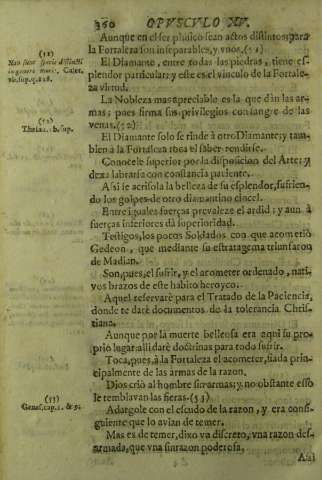 360 OPVSCVLO XV.
Aunque en el ser phisico sean actos distintos; para
la Fortaleza son inseparables, y vnos. (51)
El Diamante, entre todas las piedras, tiene es-
plendor particular: y este es el vinculo de la Fortale-
za virtud.
La Nobleza mas apreciable es la que dàn las ar-
mas; pues firma sus privilegios con sangre de las
venas. (52)
El Diamante solo se rinde à otro Diamante: y tam-
bien à la Fortaleza toca el saber rendirse.
Conocese superior por la disposicion del Arte: y
dexa labrarla con constancia paciente.
Assi se acrisola la belleza de su esplendor, sufrien-
do los golpes de otro diamantino cincel.
Entre iguales fuerças prevaleze el ardid: y aun à
fuerças inferiores dà superioridad.
Testigos, los pocos Soldados con que acometiò
Gedeon, que mediante su estratagema triunfaron
de Madian.
Son, pues, el sufrir, y el acometer ordenado, nati-
vos brazos de este habito heroyco.
Aquel reservarè para el Tratado de la Paciencia,
donde te darè documentos de la tolerancia Chris-
tiana.
Aunque por la muerte bellcosa era aqui su pro-
prio lugar: alli darè doctrinas para todo sufrir.
Toca, pues, à la Fortaleza el acometer, fiada prin-
cipalmente de las armas de la razon.
Dios criò al hombre sin armas: y no obstante esso
le temblavan las fieras. (53)
Adargòle con el escudo de la razon, y era consi-
guiente que lo avian de temer.
Mas es de temer, dixo vn discreto, vna razon des-
armada, que vna sinrazon poderosa,
(51)
Non sunt specie distincti
in genere moris. Cajet.
vbi sup. q. 128.
(52)
b. sup.
(53)
Genes. cap. 1. & 9.